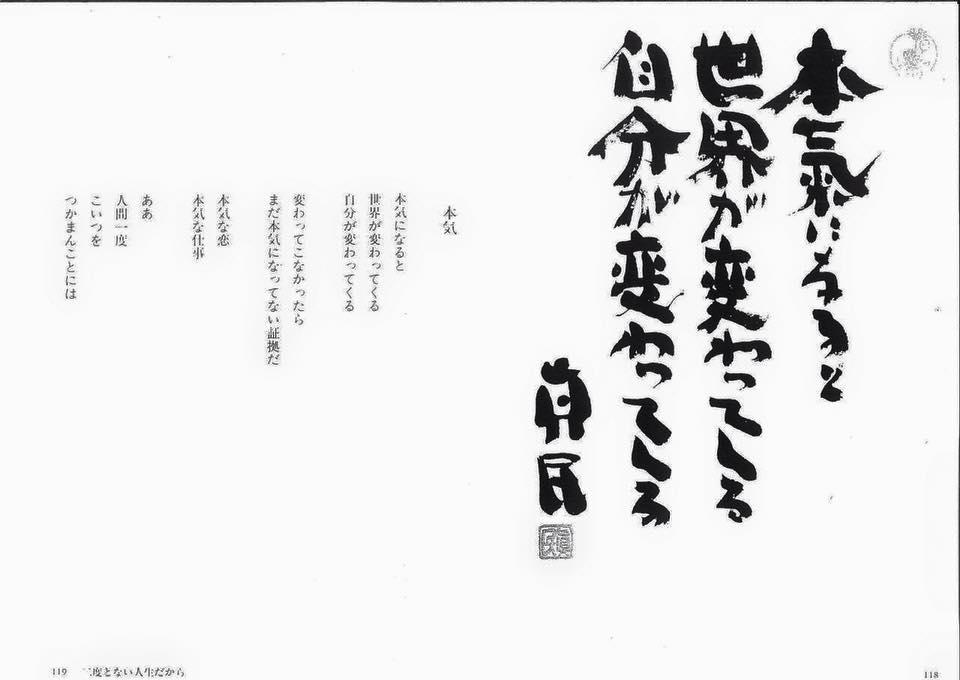 本氣になると
世界が変わってくる
自分が変わってくる
真民
118
本気
本気になると
世界が変わってくる
自分が変わってくる
変わってこなかったら
まだ本気になってない証拠だ
本気な恋
本気な仕事
ああ
人間一度
こいつを
つかまんことには
119 二度とない人生だから